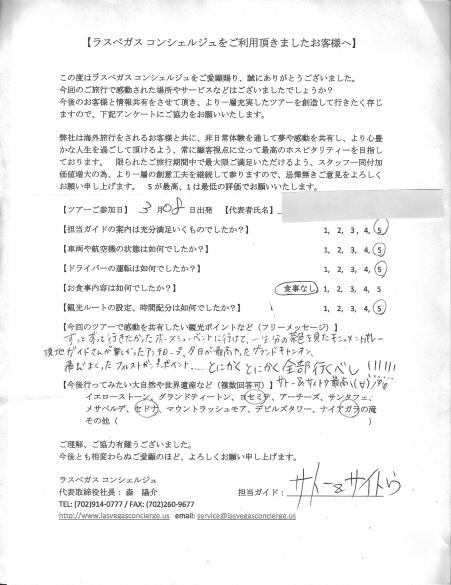 【ラスベガス コンシェルジュをご利用頂きましたお客様へ】
この度はラスベガス コンシェルジュをご愛顧賜り、誠にありがとうございました。
今回のご旅行で感動された場所やサービスなどはございましたでしょうか？
今後のお客様と情報共有をさせて頂き、より一層充実したツアーを創造して行きたく存じ
ますので、下記アンケートにご協力をお願いいたします。
弊社は海外旅行をされるお客様と共に、非日常体験を通して夢や感動を共有し、より心豊
かな人生を過ごして頂けるよう、常に顧客視点に立って最高のホスピタリティーを目指し
ております。 限られたご旅行期間中で最大限ご満足いただけるよう、スタッフ一同付加
価値増大の為、より一層の創意工夫を継続して参りますので、忌憚無きご意見をよろしく
お願い申し上げます。 5が最高、1は最低の評価でお願いいたします。
【ツアーご参加日】 3月08日出発 【代表者氏名】
【担当ガイドの案内は充分満足いくものでしたか？】 1, 2, 3, 4, 5
【車両や航空機の状態は如何でしたか？】 1, 2, 3, 4, 5
【ドライバーの運転は如何でしたか？】 1, 2, 3, 4, 5
【お食事内容は如何でしたか？】 食事なし 1, 2, 3, 4, 5
【観光ルートの設定、時間配分は如何でしたか？】 1, 2, 3, 4, 5
【今回のツアーで感動を共有したい観光ポイントなど（フリーメッセージ）】
ずっとずっと行きたかったホースシューベントに行けて、
現地ガイドさんが楽しかったアンテロープ、夕日が最高だったグランドキャニオン、
とにかくとにかく全部行くべし!!!!!!
【今後行ってみたい大自然や世界遺産など（複数回答可）】 サトー&サイトウ最高\(∀)/
イエローストーン、グランドティートン、ヨセミテ、アーチーズ、サンタフェ、
メサベルデ、セドナ、マウントラッシュモア、デビルズタワー、ナイアガラの滝
その他（ ）
ご理解、ご協力有難うございました。
今後とも相変わらぬご愛顧のほど、よろしくお願い申し上げます。
ラスベガス コンシェルジュ
代表取締役社長： 森 陽介 担当ガイド： サトー&サイトウ
TEL: (702)914-0777 / FAX: (702)260-9677
http://www.lasvegasconcierge.us email: service@lasvegasconcierge.us